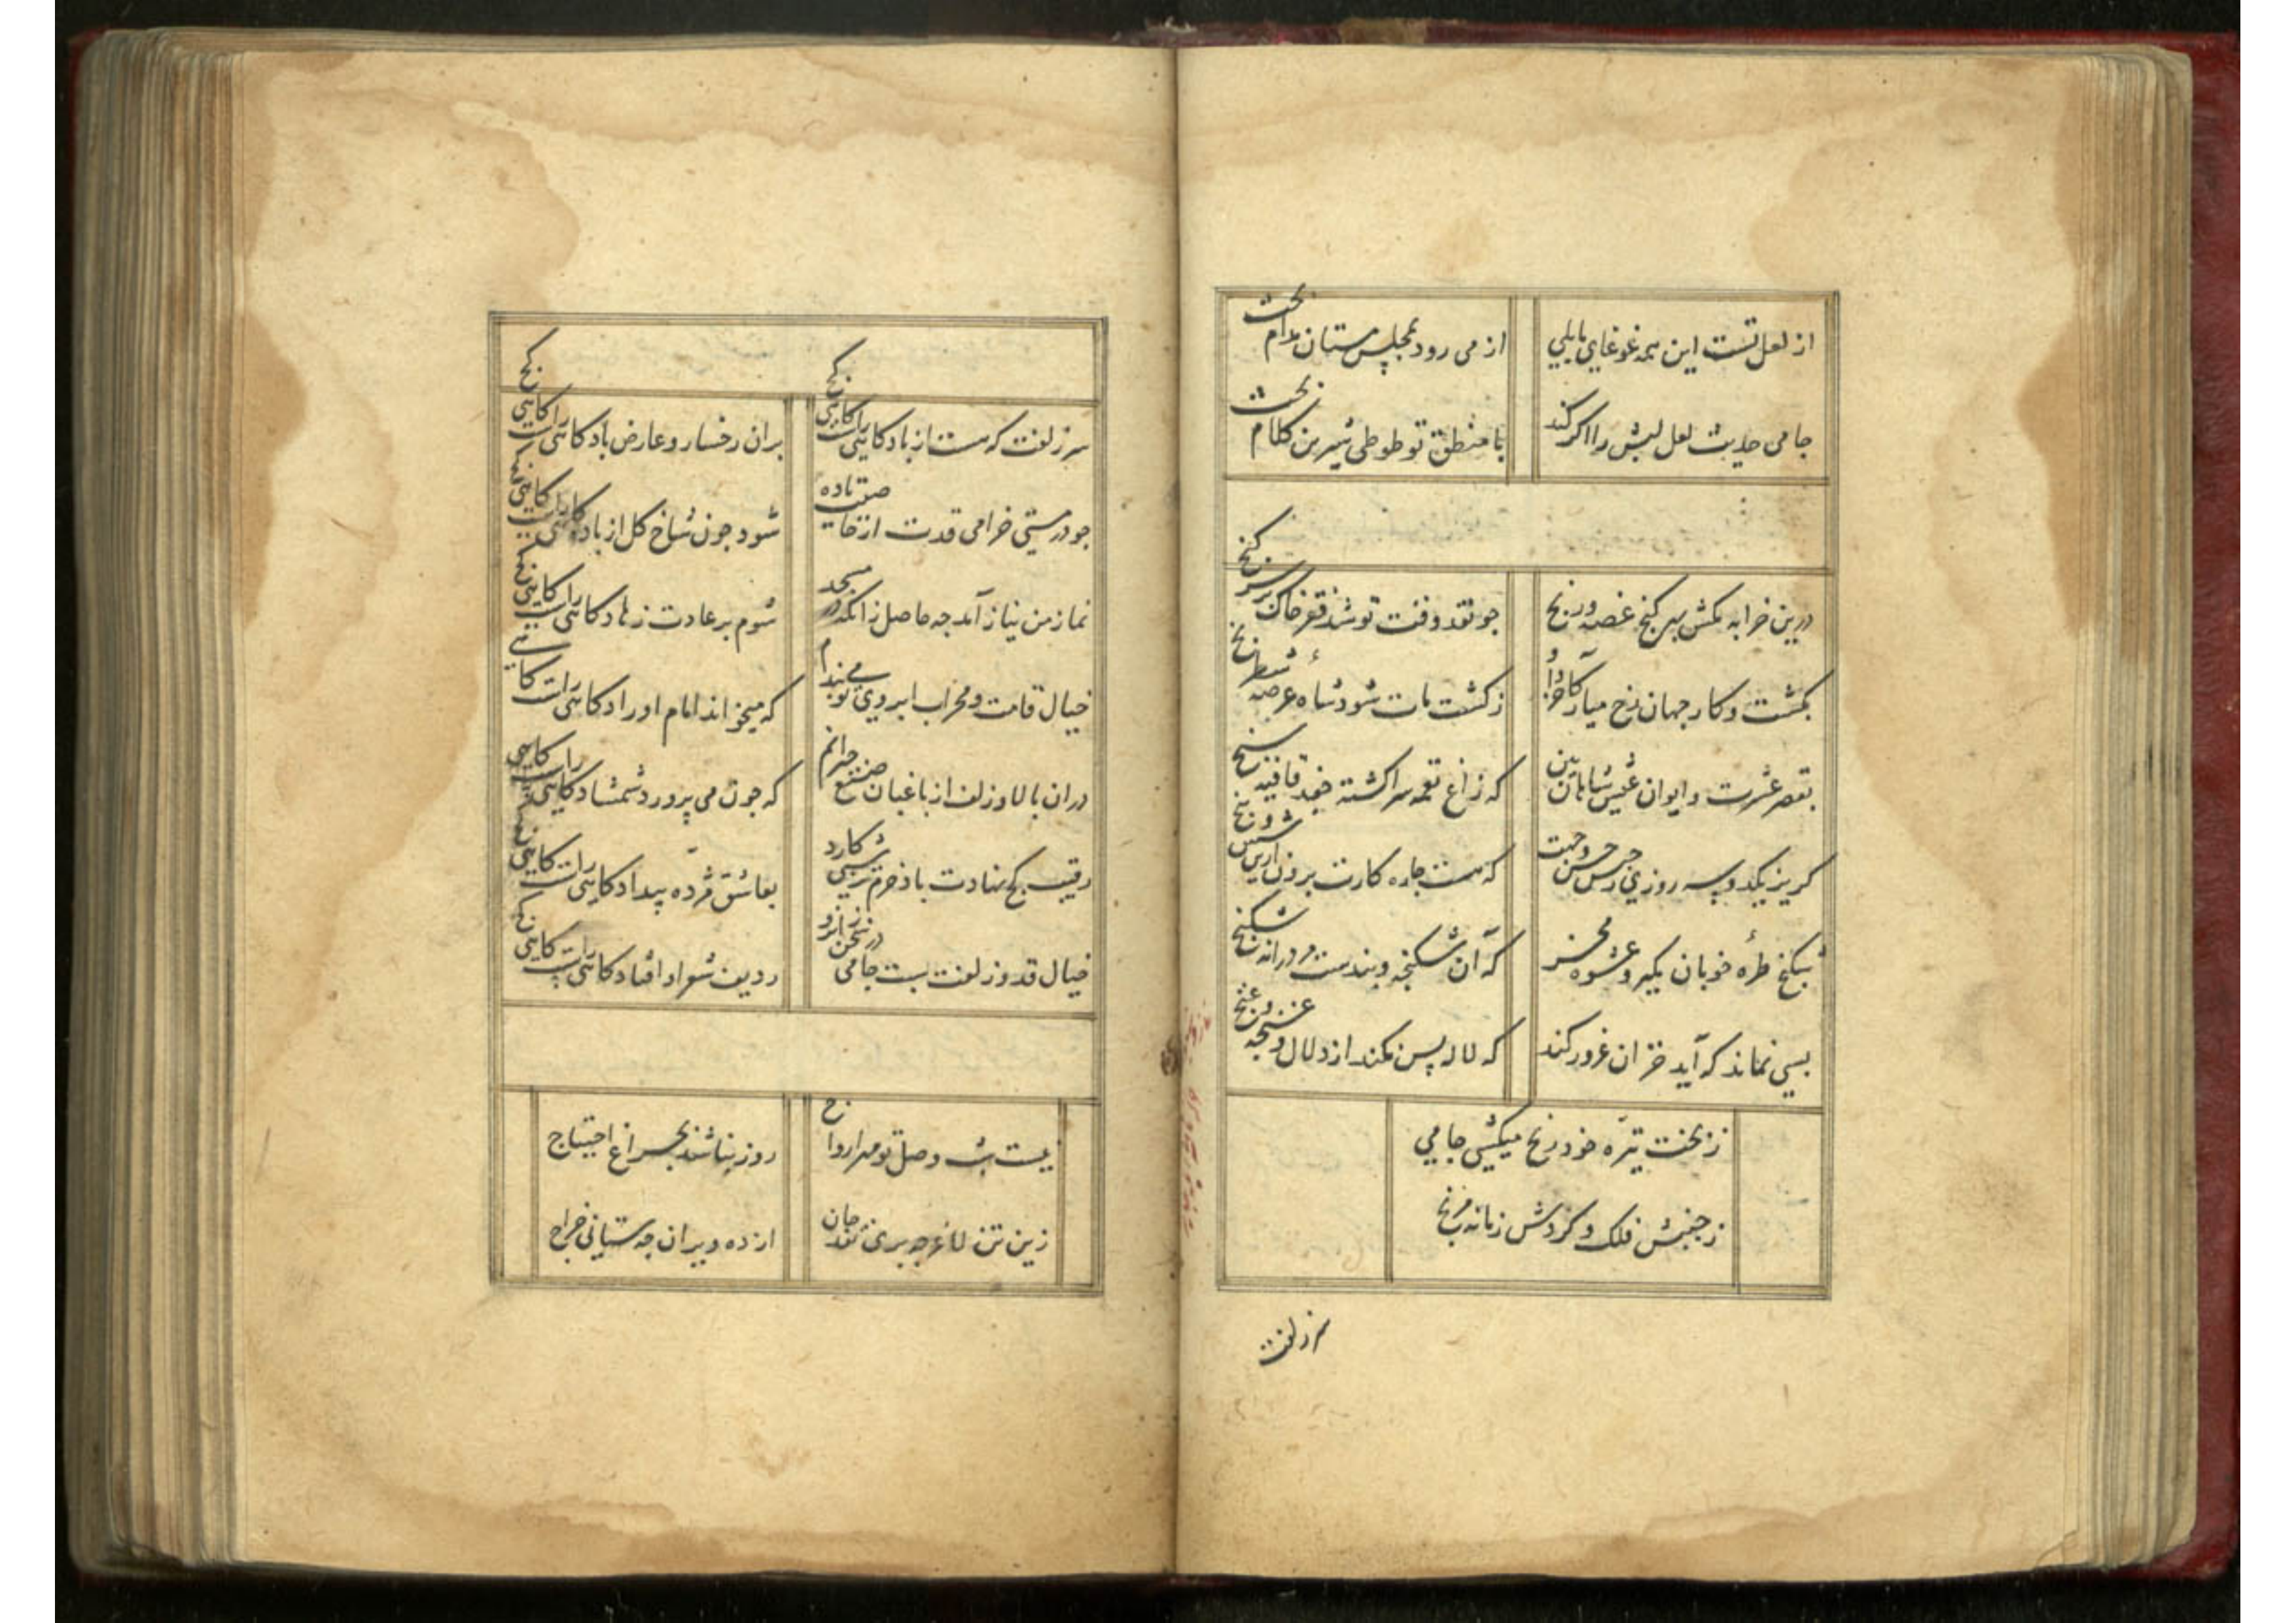 از لعل تست این همه غوغای بلبلی
از می رود بمجلس مستان مدام بحث
جامی حدیث لعل لبش را اگر کند
با منطق تو طوطی شیرین کلام بحث
درین خرابه مکش بهر گنج غصه و رنج
چو نقد وقت تو شد فقر خاک بر سر گنج
بکشت و کار جهان رخ میار کاخر
ز کشت مات شود شاه عرصه شطرنج
بقصر عشرت و ایوان عیش شاهان بین
که زاغ نغمه سرا گشته جغد قافیه سنج
گریز یکدو سه روزی ز حس و جهت
که هست چاره کارت برون ازین شش و پنج
شکنج طره خوبان مگیر و عشوه مخر
که آن شکنجه و بندست در شکنج
بسی نماند که آید خزان غرور کند
که لاله پس نکند از دلال و غنچه غنج
ز بخت تیره خود رنج میکشی جامی
ز جنبش فلک و گردش زمانه مرنج
سر زلفت
سر زلفت که هست از باد گاهی راست گاهی کج
بران رخسار و عارض باد گاهی راست گاهی کج
چو در مستی خرامی قدت از
شود چون شاخ گل از باد گاهی راست گاهی کج
نماز من نیاز آمد چه حاصل زانکه در مسجد
شوم بر عادت زهاد گاهی راست گاهی کج
خیال قامت و محراب ابروی تو می بندم
که میخواند امام اوراد گاهی راست گاهی کج
دران بالا و زلف از باغبان صنع حیرانم
که چون می پرورد شمشاد گاهی راست گاهی کج
رقیب کج نهادت باد خرم
بعاشق مژده بیداد گاهی راست گاهی کج
خیال قد و زلفت بست جامی در سخن زانرو
ردیف شعر او افتاد گاهی راست گاهی کج
نیست بشب وصل تو مه را رواج
روز نباشد بچراغ احتیاج
زین تن لاغر چه بری نقد جان
از ده ویران چه ستانی خراج